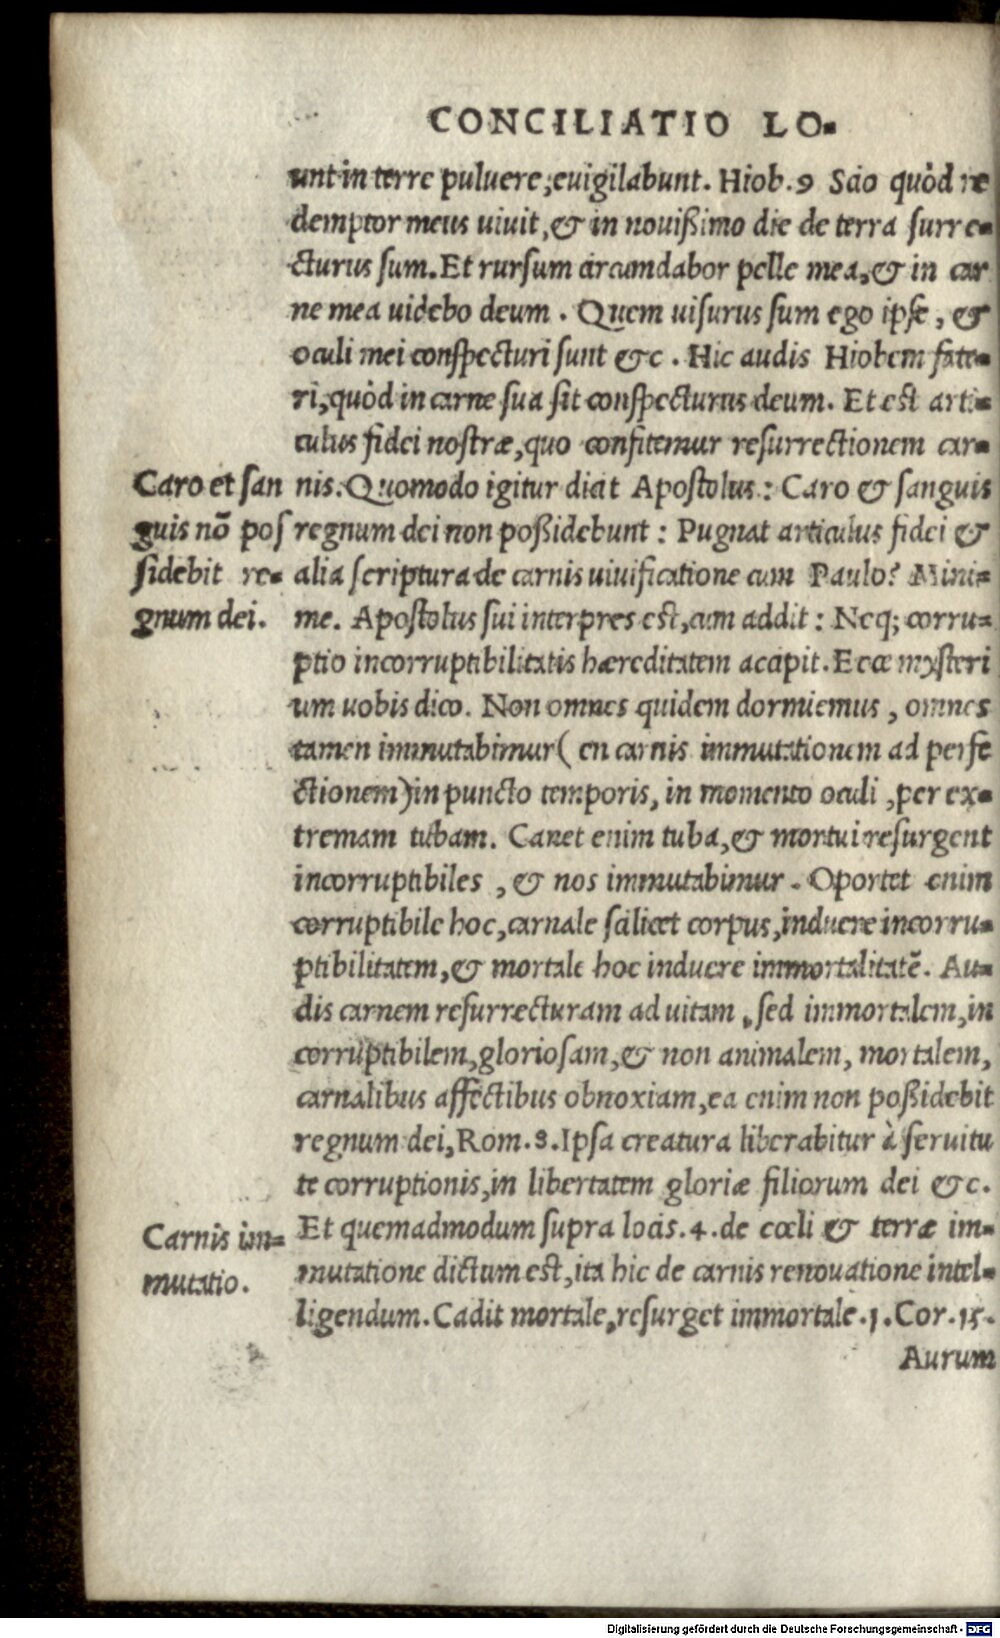 CONCILIATIO LO-
unt in terre puluere, euigilabunt. Hiob. 9 Scio quòd re
demptor meus uiuit, & in nouißimo die de terra surre-
cturus sum. Et rursum circumdabor pelle mea, & in car
ne mea uidebo deum. Quem uisurus sum ego ipse, &
oculi mei conspecturi sunt &c. Hic audis Hiobem fate-
ri, quòd in carne sua sit conspecturus deum. Et est arti-
culus fidei nostræ, quo confitemur resurrectionem car-
nis. Quomodo igitur dicit Apostolus: Caro & sanguis
regnum dei non poßidebunt: Pugnat articulus fidei &
alia scriptura de carnis uiuificatione cum Paulo? Mini-
me. Apostolus sui interpres est, cum addit: Neq; corru-
ptio incorruptibilitatis hæreditatem accipit. Ecce mysteri
um uobis dico. Non omnes quidem dormiemus, omnes
tamen immutabimur (en carnis immutationem ad perfe
ctionem) in puncto temporis, in momento oculi, per ex-
tremam tubam. Canet enim tuba, & mortui resurgent
incorruptibiles, & nos immutabimur. Oportet enim
corruptibile hoc, carnale scilicet corpus, induere incorru-
ptibilitatem, & mortale hoc induere immortalitatē. Au-
dis carnem resurrecturam ad uitam, sed immortalem, in
corruptibilem, gloriosam, & non animalem, mortalem,
carnalibus affectibus obnoxiam, ea enim non poßidebit
regnum dei, Rom. 8. Ipsa creatura liberabitur à seruitu
te corruptionis, in libertatem gloriæ filiorum dei &c.
Et quemadmodum supra locis. 4. de cœli & terræ im-
mutatione dictum est, ita hic de carnis renouatione intel-
ligendum. Cadit mortale, resurget immortale. 1. Cor. 15.
Aurum
Caro et san
guis nō pos
sidebit re-
gnum dei.
Carnis im-
mutatio.
Digitalisierung gefördert durch die Deutsche Forschungsgemeinschaft - DFG